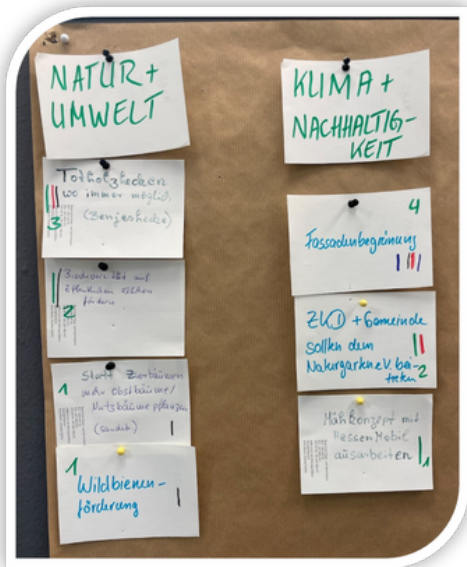 NATUR +
UMWELT
Totholzhecken
wo immer möglich
(Benjeshecke)
3
Biodiversität auf
öffentlichen Flächen
fördern
2
1 Statt Zierbäumen
mehr Obstbäume/
Nutzbäume pflanzen
1
Wildbienen-
förderung
KLIMA +
NACHHALTIG-
KEIT
4
Fassadenbegrünung
+ Gemeinde
sollten dem
Naturgarten e.V. bei-
treten 2
Mähkonzept mit
HessenMobil
ausarbeiten 1